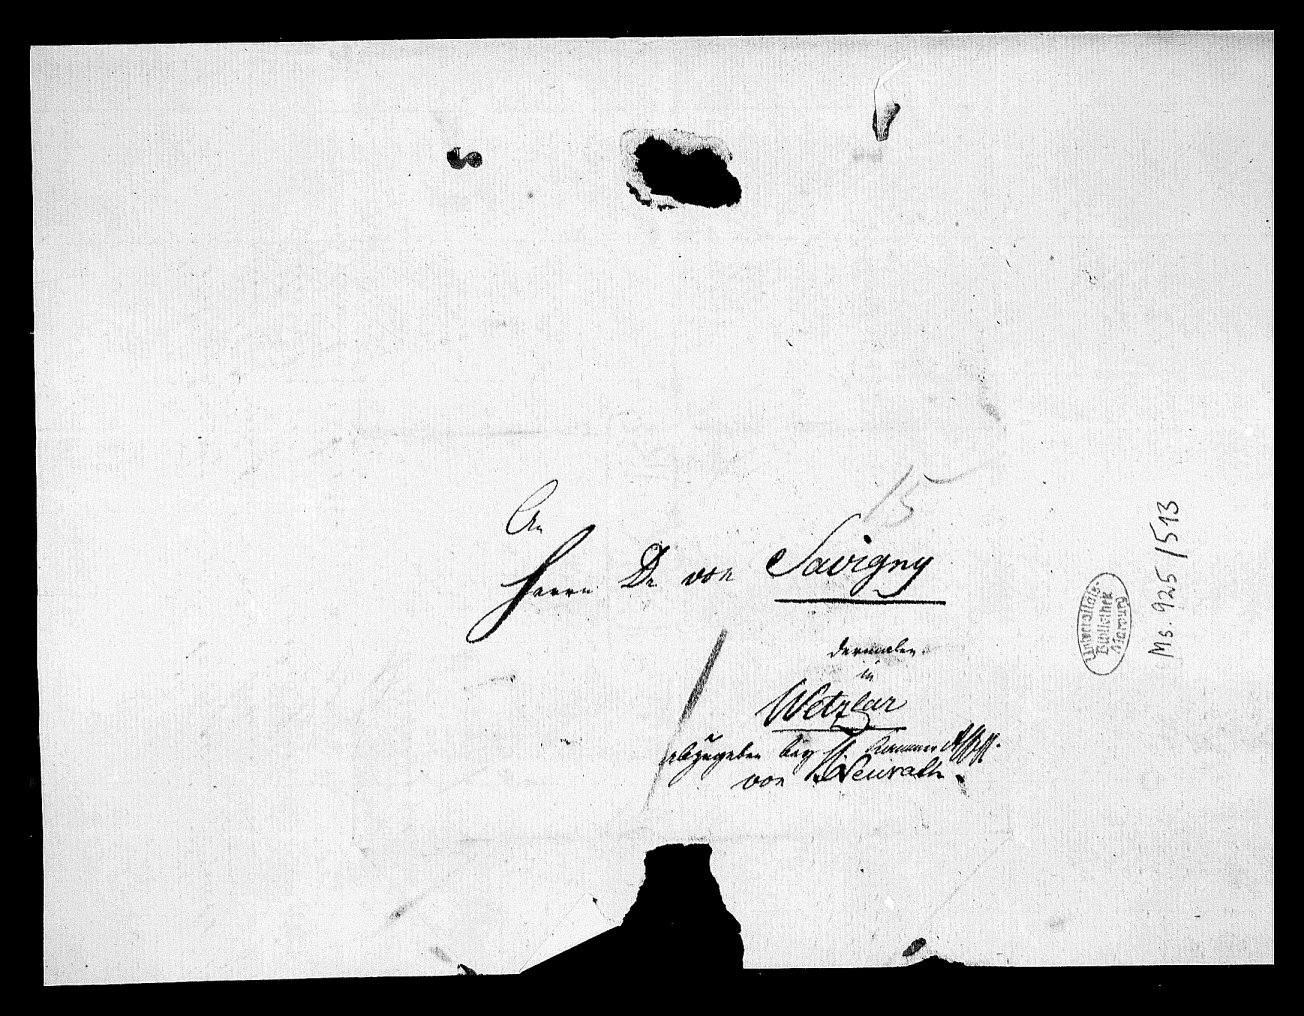 An
Herrn Dr von Savigny
15
dermalen
in
Wetzlar
abzugeben bey H. Kammer Assess.
von Neurath.
Universitäts-
Bibliothek
Marburg
Ms. 925/513